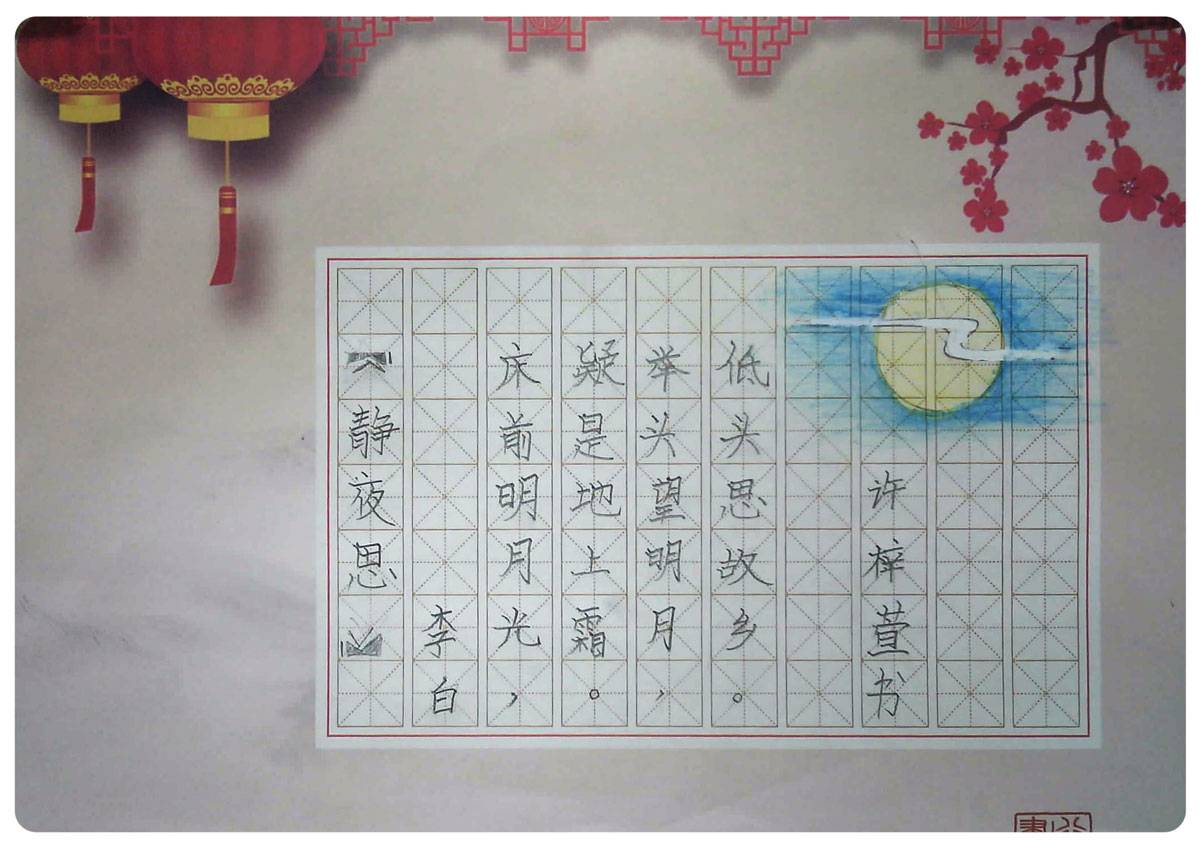 《静夜思》
李白
床前明月光，
疑是地上霜。
举头望明月，
低头思故乡。
许梓萱书